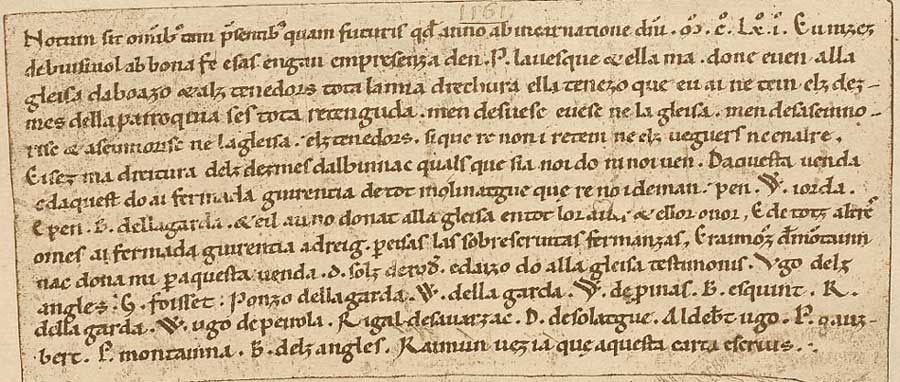 1161
Notum sit omib' tam psentib' quam futuris qd anno ab incarnatione dni . Mº. Cº. Lxº. iº. Eu mezez
de buisivol ab bona fe e sas engan e mpresenza den . P. lavesque & en ella ma . done e ven . alla
gleisa daboazo & alz tenedors tota la mia drechura e lla tenezo que eu ai ne tein elz dez-
mes della parroquia ses tota retenguda . men desvese e vese ne la gleisa . men desasenno-
risc & asennorisc ne la gleisa . elz tenedors . si que re non i retein ne elz veguers ne en alre .
Eisez ma dreitura delz dezmes dalbinnac quals que sia no i do ni no i ven . Daquesta venda
e daquest do ai fermada guirentia de tot molnatgue que re no i deman . pen . W. iorda .
E pen . B. della garda . & eil an no donat alla gleisa en tot lor & e llor onor , E de totz altres
omes ai fermada guirentia a dreig . per eisas las sobrescriutas fermanzas , E raimonz de montaun
nac dona mi per aquesta venda . d. solz de rod. e daizo do alla gleisa testimonis . Ugo delz
angles . G. foisset . Ponzo della garda . W. della garda . W. de pinas . B. esquint . R.
della garda . W. ugo de peirola . Rigal de savarzac . D. de solatgue . Aldebt ugo . P. gauz-
bert . P. montanna . B. delz angles . Raimun vezia que aquesta carta escrius .